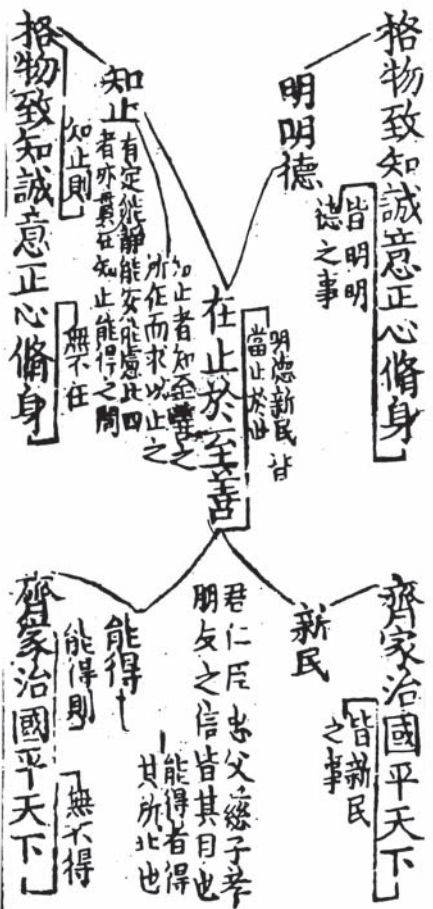 格物致知誠意正心脩身
皆明明
德之事
明明德
明德新民皆
當止於此
在止於至善
知止者知至善之
所在而求以止之
有定能静能安能慮此四
者亦貫在知止能得之間
知止
知止則
無不在
格物致知誠意正心脩身
齊家治國平天下
皆新民
之事
新民
君仁臣忠父慈子孝
朋友之信皆其目也
能得者得
其所止也
能得
能得則
無不得
齊家治國平天下